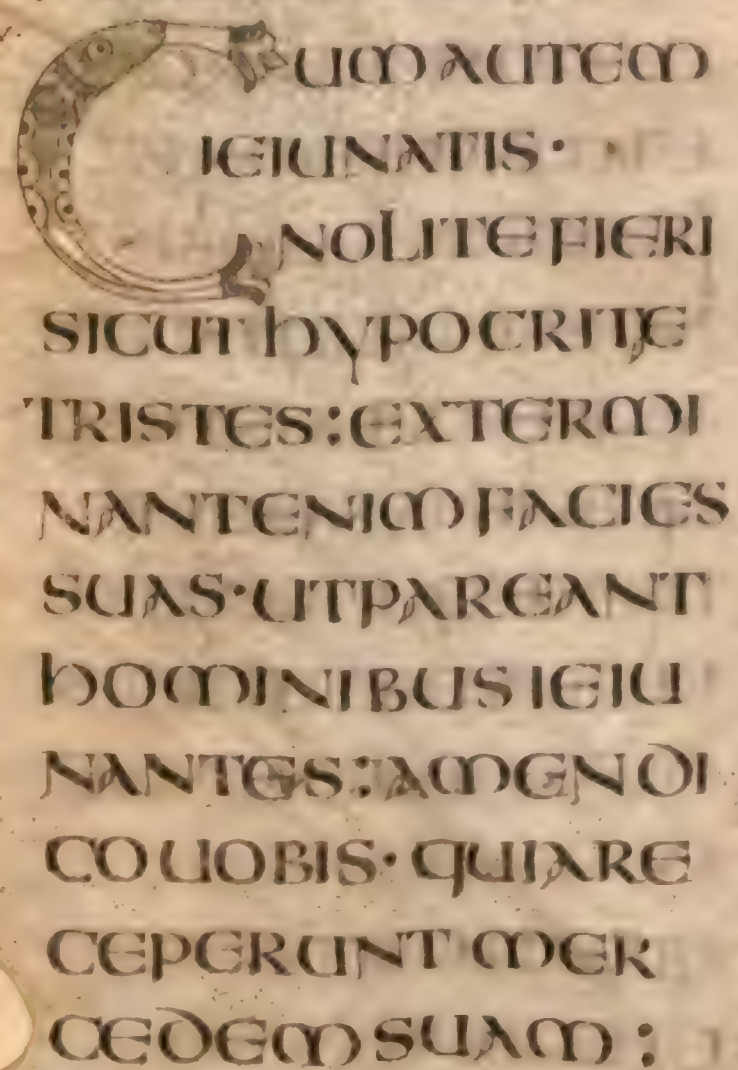 CUM AUTEM
IEIUNATIS·
NOLITE FIERI
SICUT hYPOCRITAE
TRISTES: EXTERMI
NANT ENIM FACIES
SUAS· UT PAREANT
hOMINIBUS IEIU
NANTES: AMEN DI
CO UOBIS· QUIA RE
CEPERUNT MER
CEDEM SUAM: